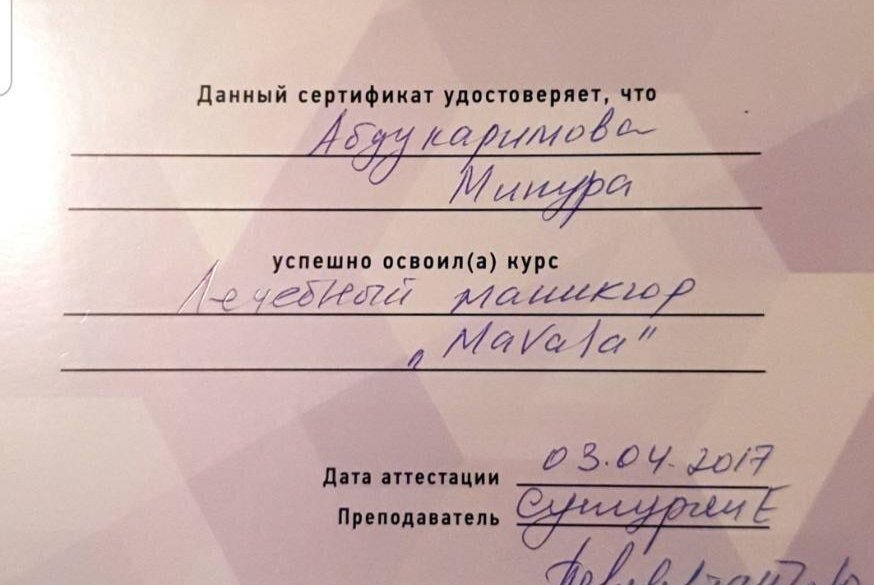 Данный сертификат удостоверяет, что
Абдукаримова
Минура
успешно освоил(а) курс
Лечебный маникюр
„Mavala"
Дата аттестации 03.04.2017
Преподаватель